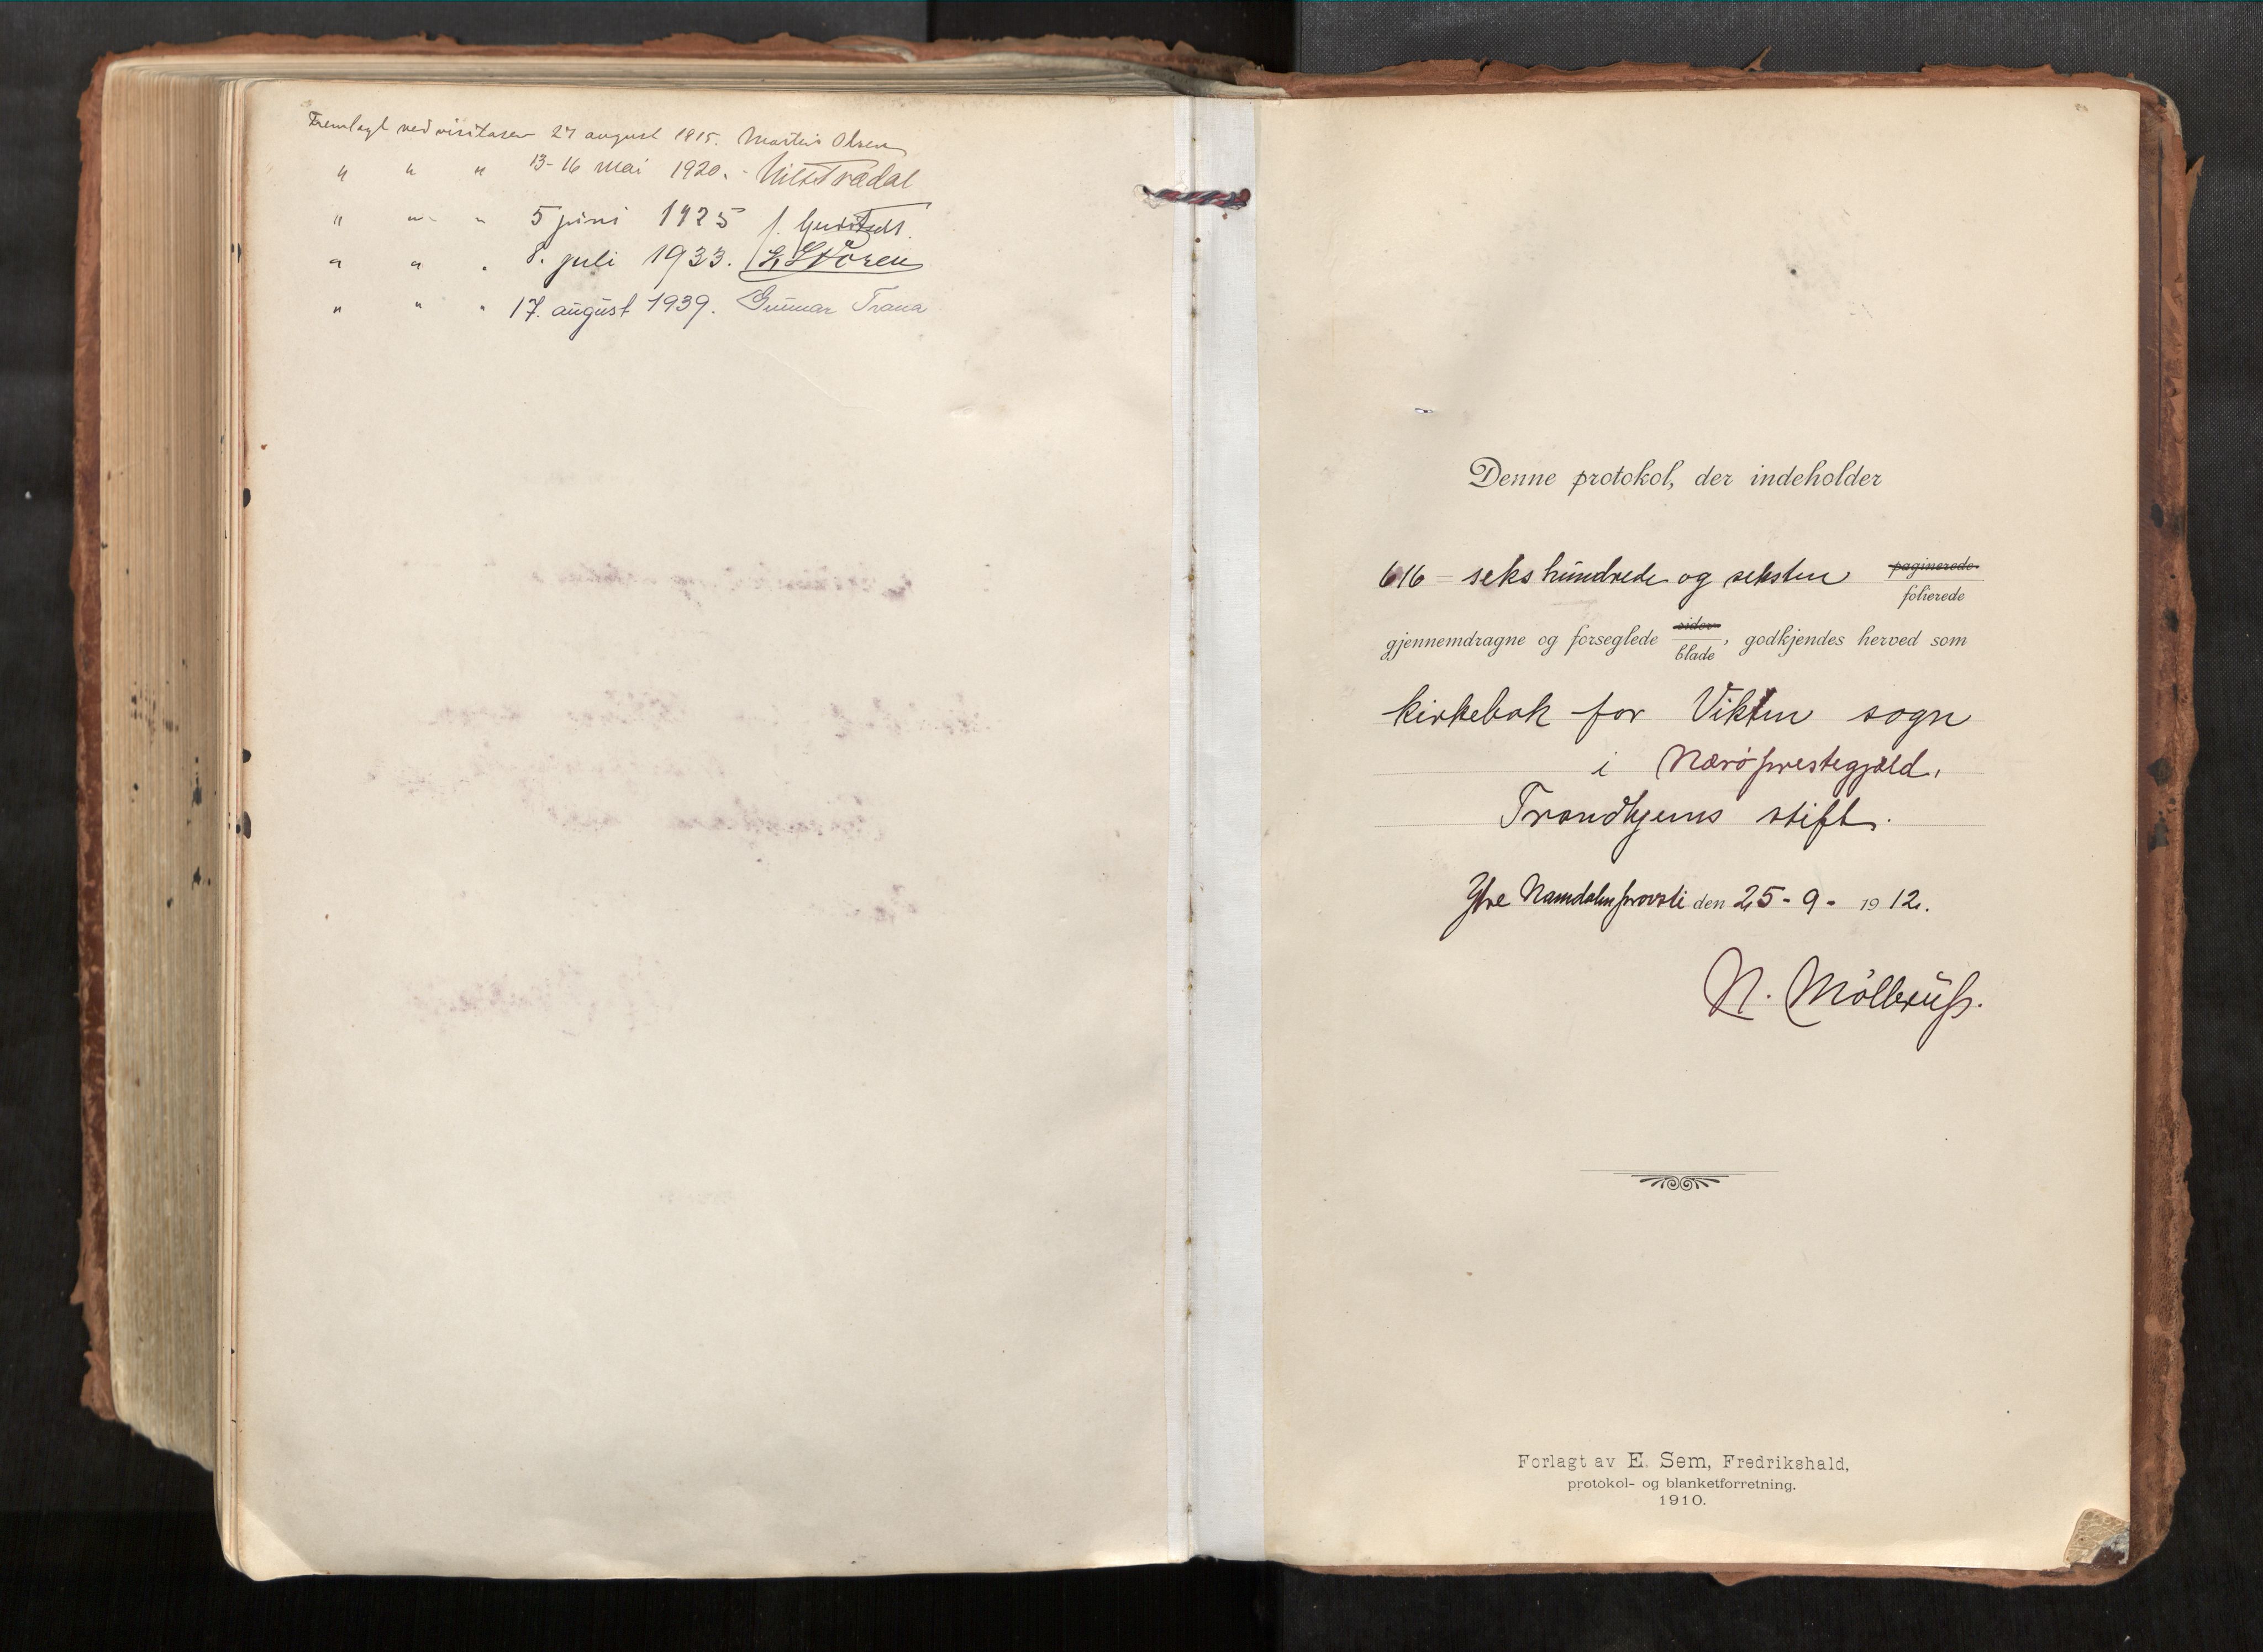 Fremlagt ved visitasen 27 august 1915. Martin Olsen
" " " 13-16 mai 1920. - Nils Trædal
" " " 5 juni 1925
" " " 8. juli 1933. Støren
" " " 17. august 1939. Gunnar Trana
Denne protokol, der indeholder
616 = seks hundrede og seksten paginerede
folierede
gjennemdragne og forseglede sider
blade, godkjendes herved som
kirkebok for Vikten sogn
i Nærö prestegjæld,
Trondhjems stift.
Ytre Namdalen provsti den 25 - 9 - 1912.
N. Möller
Forlagt av E. Sem, Fredrikshald,
protokol- og blanketforretning.
1910.